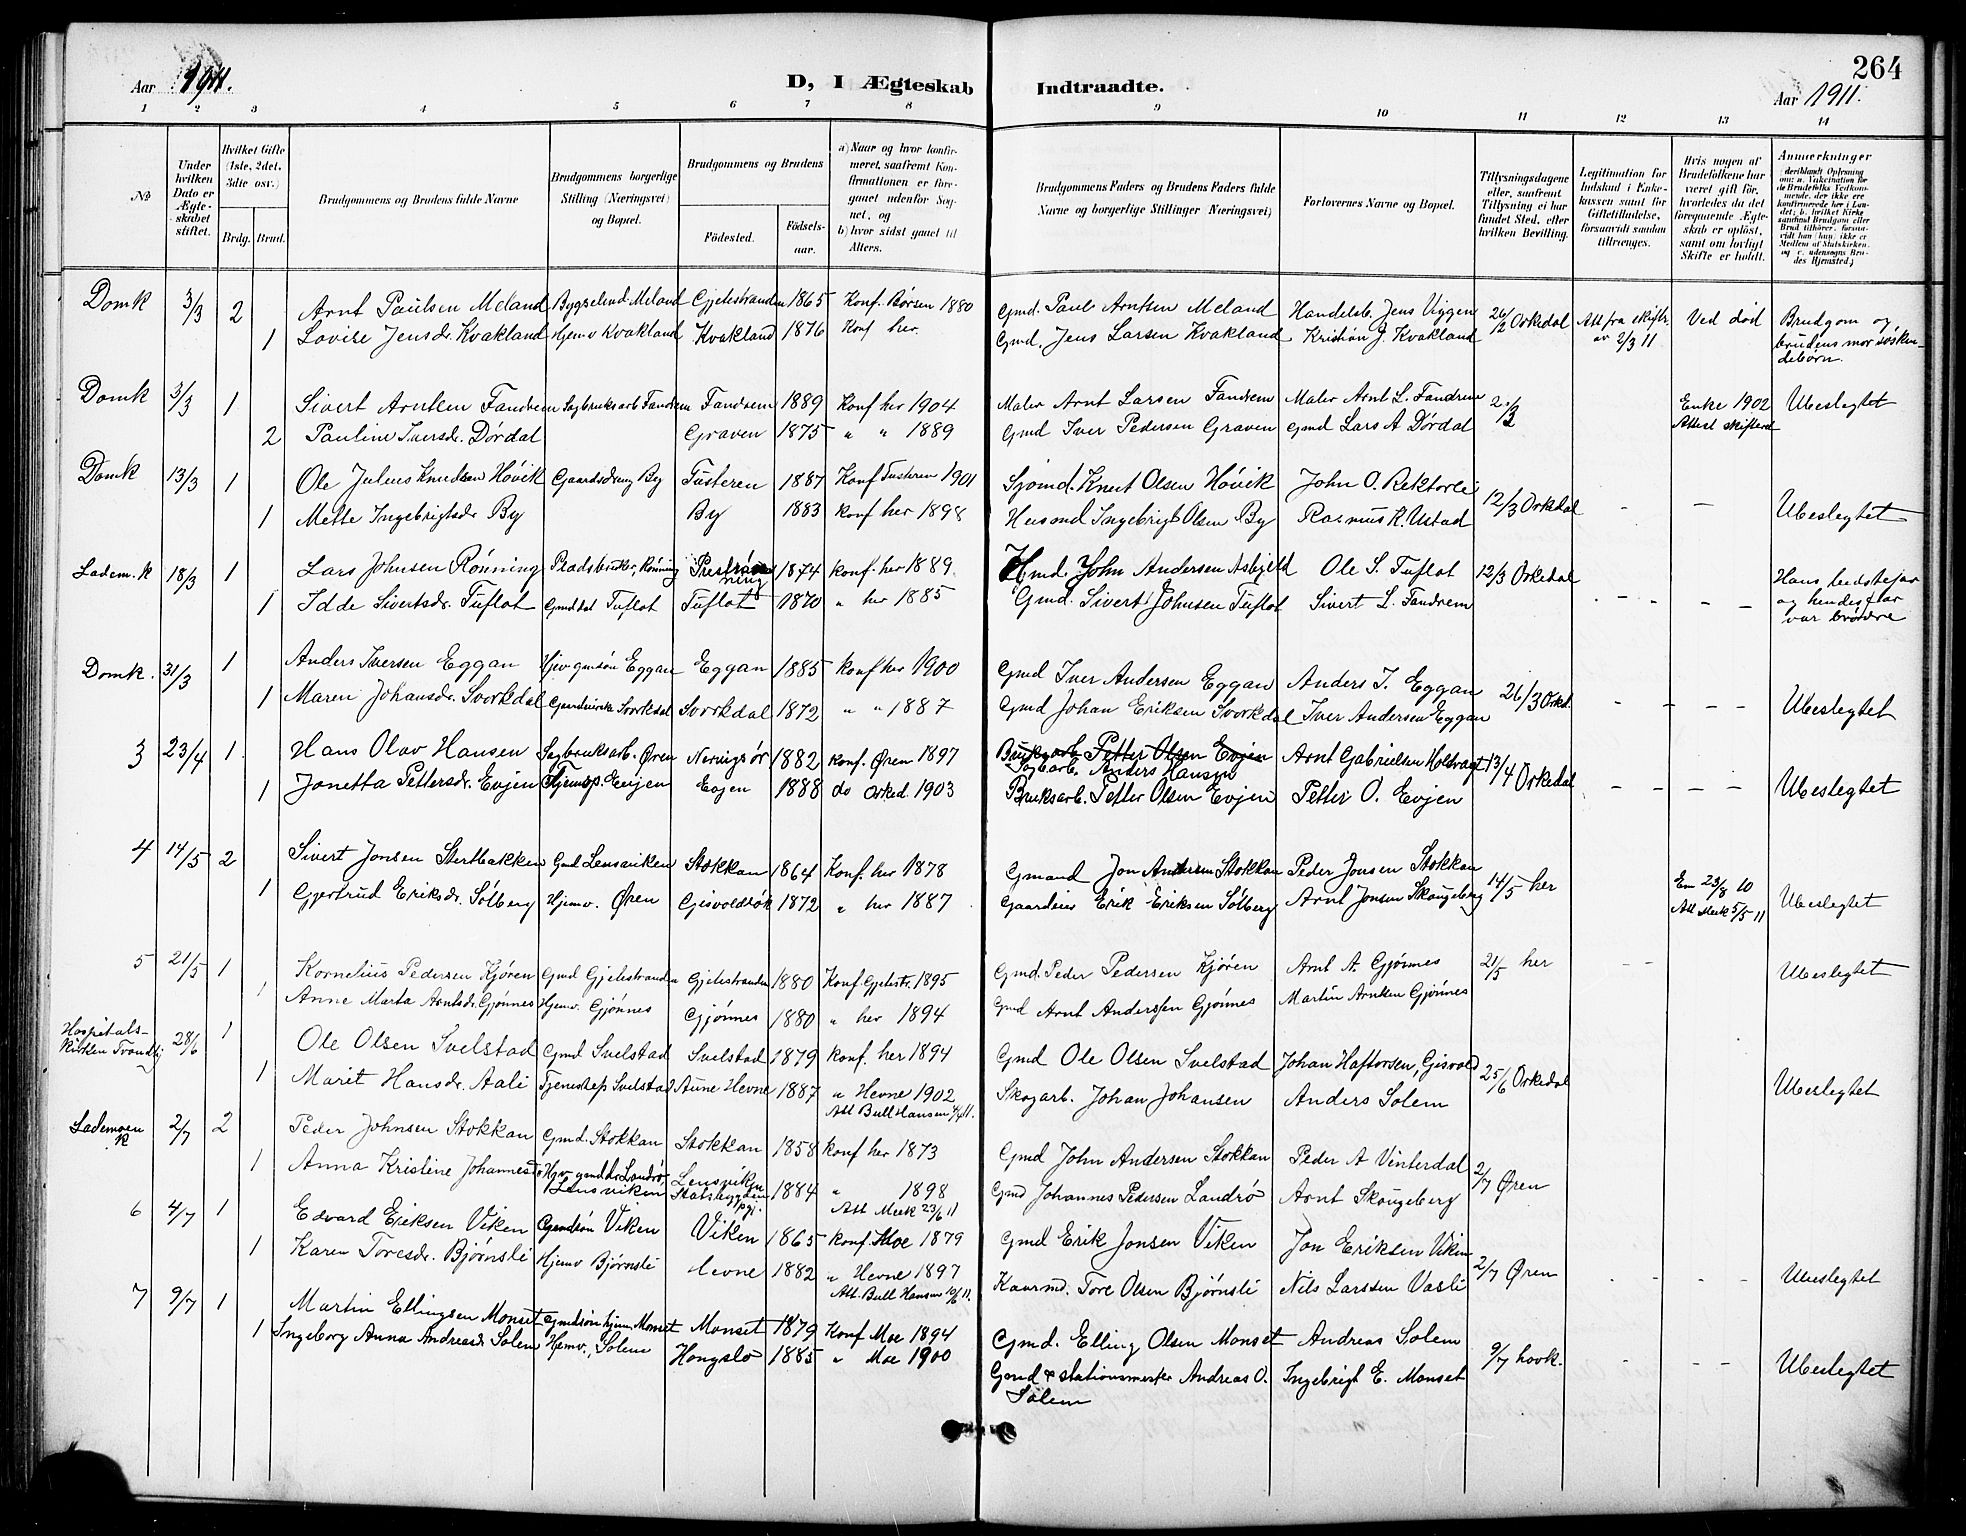 264
Aar 1911. D, I Ægteskab Indtraadte. Aar 1911.
1 2 3 4 5 6 7 8 9 10 11 12 13 14
No
Under hvilken Dato er Ægteskabet stiftet.
Hvilket Gifte (1ste, 2det, 3die osv.)
Brdg. Brud.
Brudgommens og Brudens fulde Navne
Brudgommens borgerlige Stilling (Næringsvei) og Bopæl.
Brudgommens og Brudens
Fødested. Fødsels-aar.
a) Naar og hvor konfirmeret, saafremt Konfirmationen er foregaaet udenfor Sognet, og
b) hvor sidst gaaet til Alters.
Brudgommens Faders og Brudens Faders fulde Navne og borgerlige Stillinger Næringsvei)
Forlovernes Navne og Bopæl.
Tillysningsdagene eller, saafremt Tillysning ei har fundet Sted, efter hvilken Bevilling.
Legitimation for Indskud i Enkekassen samt for Giftetilladelse, forsaavidt saadan tiltrænges.
Hvis nogen af Brudefolkene har været gift før, hvorledes da det foregaaende Ægteskab er opløst, samt om lovligt Skifte er holdt.
Anmerkninger
Domk 3/3 2 Arnt Paulsen Meland Bygselmd. Meland Gjelestranden 1865 Konf. Børsen 1880 Gmd. Paul Arntsen Meland Handelsb. Jens Viggen 26/2 Orkedal Att fra skiftr. av 2/3 11 Ved død Brudgom og
1 Lovise Jensdr. Kvakland Hjemv Kvakland Kvakland 1876 Konf her. Gmd. Jens Larsen Kvakland Kristian J. Kvakland brudens mor søskendebørn.
Domk 3/3 1 Sivert Arntsen Fandrem Sagbruksarb Fandrem Fandrem 1889 Konf her 1904 Maler Arnt Larsen Fandrem Maler Arnt L. Fandrem Enke 1902 Ubeslegtet
2 Pauline Iversdr. Dørdal Graven 1875 " " 1889 Gmd Iver Pedersen Graven Gmd Lars A Dørdal Attest skifterd
Domk 13/3 1 Ole Julius Knudsen Høvik Gaardsdreng By Tusteren 1887 Konf Tusteren 1901 Sjømd. Knut Olsen Høvik John O. Rektorli 12/3 Orkedal - -
1 Mette Ingebrigtsdr By By 1883 konf her 1898 Husmd Ingebrigt Olsen By Rasmus R. Ustad Ubeslegtet
Ladem. K 18/3 1 Lars Johnsen Rønning Pladsbruker, Rønning 1874 konf. her 1889. Hmd. John Andersen Asbjeld Ole S. Tuflot 12/3 Orkedal Hans bedstefar
1 Idde Sivertsdr. Tuflot Gmddat Tuflot Tuflot 1870 " her 1885 Gmd. Sivert Johnsen Tuflot Sivert L. Fandrem - - - - og hendes far var brødre
Domk. 31/3 1 Anders Iversen Eggan Hjv gmsøn Eggan Eggan 1885 konf her 1900 Gmd Iver Andersen Eggan Anders I. Eggan 26/3 Orkd.
1 Maren Johansdr. Svorkdal Svorkdal Svorkdal 1872 " " 1887 Gmd Johan Eriksen Svorkdal Iver Andersen Eggan - - - - Ubeslegtet
3 23/4 1. Hans Olav Hansen Sagbruksarb. Øren 1882 konf. Øren 1897 Bruksarb Petter Olsen Evjen Arnt Gabrielsen Holtvagt 13/4 Orkedal
Sagbarb. Anders Hansen
1 Jonetta Pettersdr. Evjen Hjemsp. Evjen Evjen 1888 do Orked. 1903 Bruksarb. Petter Olsen Evjen Petter O. Evjen - - - - Ubeslegtet
4 14/5 2 Sivert Jonsen Stertbakken Gmd Lensviken Stokkan 1864 Konf. her 1878 Gmand Jon Andersen Stokkan Peder Jonsen Stokkan 14/5 her Em 23/8 10
1 Gjertrud Eriksdr. Sølberg Hjemv. Øren Gisvoldsøk 1872 " her 1887 Gaardeier Erik Eriksen Sølberg Arnt Jonsen Skougeberg Att Meek 5/5 11 Ubeslegtet
5 21/5 1 Kornelius Pedersen Kjøren Gmd Gjelestranden Gjelestranden 1880 Konf Gjelestr. 1895 Gmd. Peder Pedersen Kjøren Arnt A. Gjønnes 21/5 her - - Ubeslegtet
1 Anne Marta Arntsdr. Gjønnes Hjemv. Gjønnes Gjønnes 1880 " her 1894 Gmd Arnt Anderssen Gjønnes Martin Arntsen Gjønnes
Hospitals-kirken Trondhj 28/6 1 Ole Olsen Svelstad Gmd Svelstad Svelstad 1879 konf. her 1894 Gmd Ole Olsen Svelstad Johan Haftorsen, Gisvold 25/6 Orkedal
1 Marit Hansdr. Aali Tjenestep Svelstad Aune Hevne 1887 " Hevne 1902 Skogarb. Johan Johansen Anders Solem Ubeslegtet
Att Bull Hansen 4/4 11.
Lademoen K 2/7 2 Peder Johnsen Stokkan Gmd. Stokkan Stokkan 1858 konf her 1873 Gmd John Andersen Stokkan Peder A Vinterdal 2/7 Øren
1 Anna Kristine Johannesd. Hjv gmddr Landrø, Lensviken Lensviken Statsbygden pgj. 1884 " 1898 Gmd Johannes Pedersen Landrø Arnt Skougeberg
Att Meek 23/6 11
6 4/7 1 Edvard Eriksen Viken Gmdsøn Viken Viken 1865 konf. Moe 1879 Gmd Erik Jonsen Viken Jon Eriksen Viken 2/7 Øren
1 Karen Toresdr. Bjørnsli Hjemv Bjørnsli Hevne 1882 " Hevne 1897 Kaarmd. Tore Olsen Bjørnsli Nils Larssen Vasli - - - Ubeslegtet
Att. Bull Hansen 10/6 11.
7 9/7 1 Martin Ellingsen Monset Gmdsøn hjem. Monset Monset 1879 Konf Moe 1894 Gmd. Elling Olsen Monset Andreas Solem 9/7 hovk.
1 Ingeborg Anna Andreasd. Solem Hemv., Solem Hongslo 1885 " Moe 1900 Gmd & stationsmester Andreas O. Solem Ingebrigt E. Monset - - - Ubeslegtet